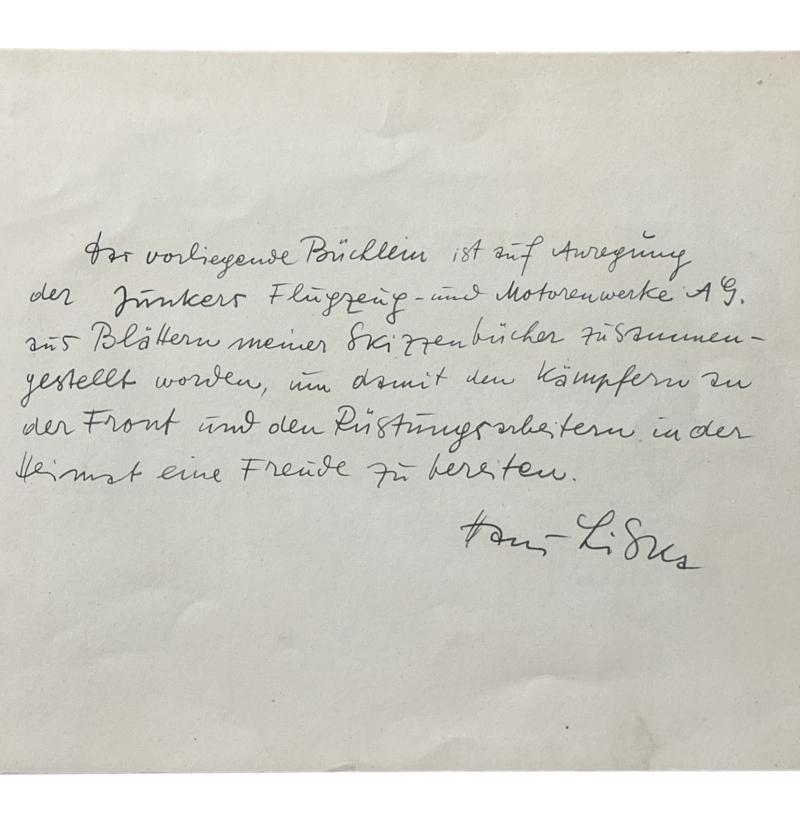 Das vorliegende Büchlein ist auf Anregung
der Junkers Flugzeug- und Motorenwerke A G.
aus Blättern meiner Skizzenbücher zusammen-
gestellt worden, um damit den Kämpfern an
der Front und den Rüstungsarbeitern in der
Heimat eine Freude zu bereiten.
Hans Liska